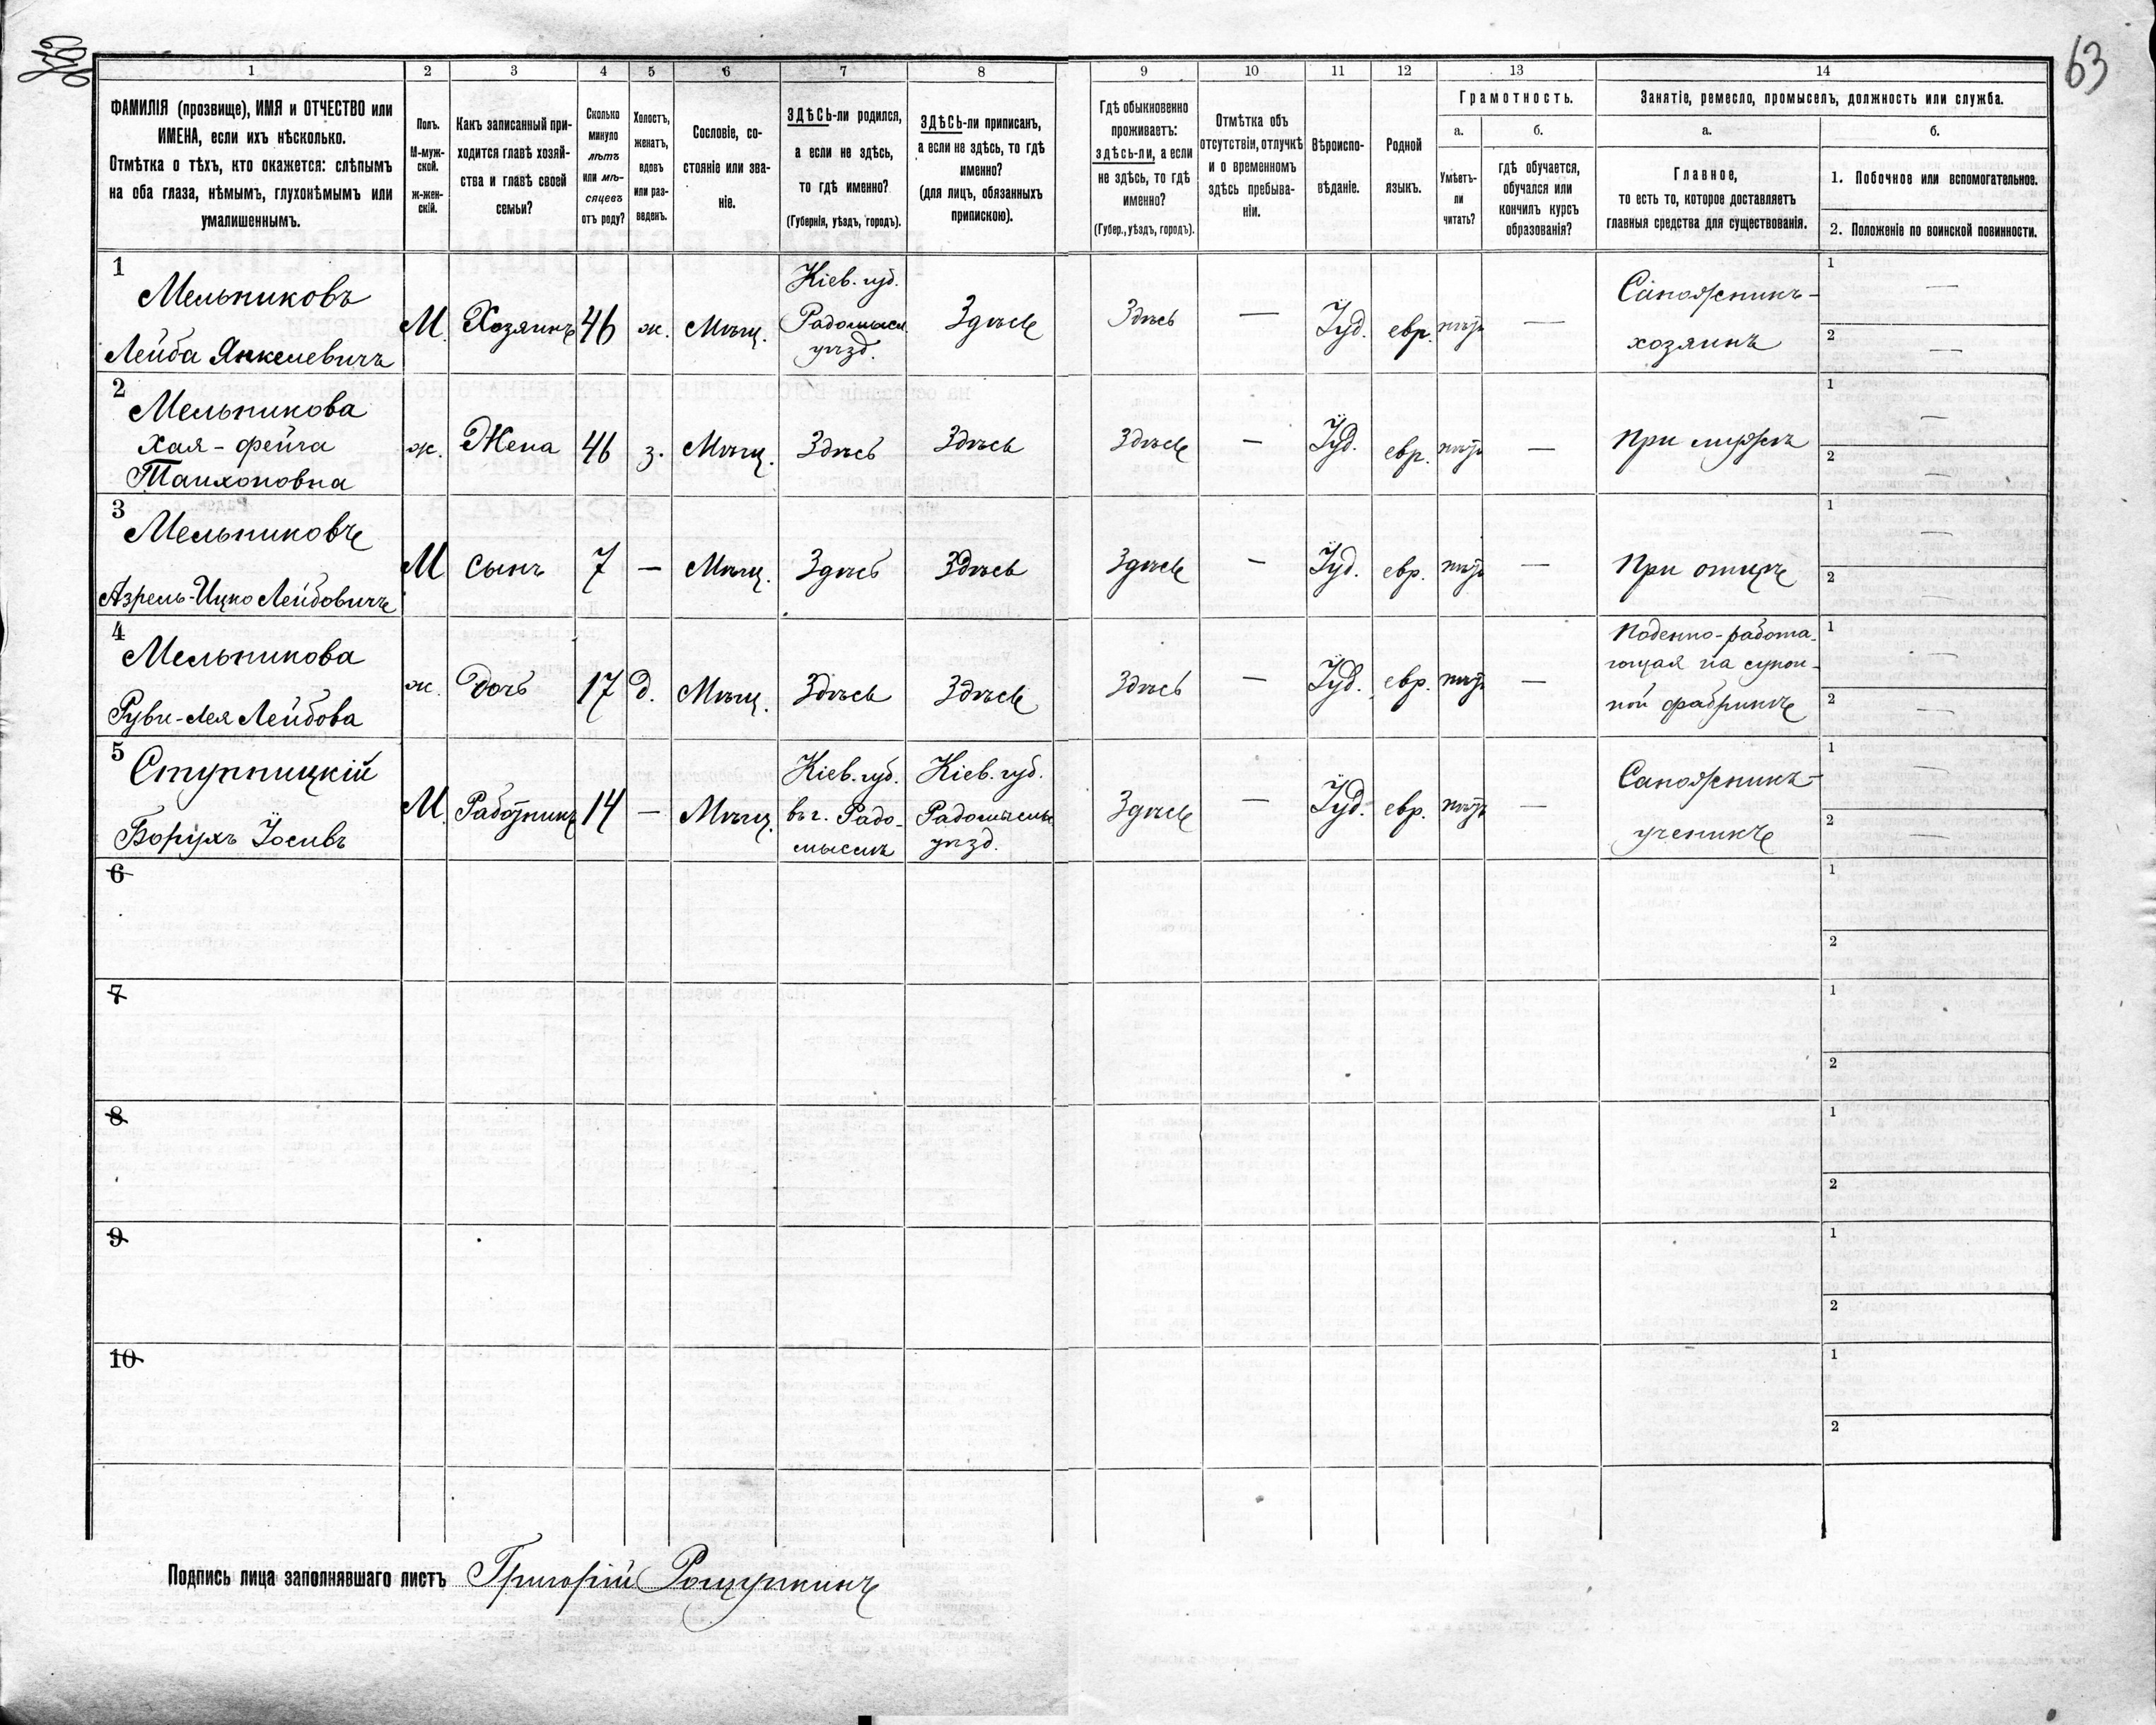 63
1 2 3 4 5 6 7 8 9 10 11 12 13 14
ФАМИЛІЯ (прозвище), ИМЯ и ОТЧЕСТВО или
ИМЕНА, если ихъ нѣсколько.
Отмѣтка о тѣхъ, кто окажется: слѣпымъ
на оба глаза, нѣмымъ, глухонѣмымъ или
умалишеннымъ.
Полъ.
М-муж-
ской.
ж-жен-
скій.
Какъ записанный при-
ходится главѣ хозяй-
ства и главѣ своей
семьи?
Сколько
минуло
лѣтъ
или мѣ-
сяцевъ
отъ роду?
Холостъ,
женатъ,
вдовъ
или раз-
веденъ.
Сословіе, со-
стояніе или зва-
ніе.
ЗДѢСЬ-ли родился,
а если не здѣсь,
то гдѣ именно?
(Губернія, уѣздъ, городъ).
ЗДѢСЬ-ли приписанъ,
а если не здѣсь, то гдѣ
именно?
(для лицъ, обязанныхъ
припискою).
Гдѣ обыкновенно
проживаетъ:
здѣсь-ли, а если
не здѣсь, то гдѣ
именно?
(Губер., уѣздъ, городъ).
Отмѣтка объ
отсутствіи, отлучкѣ
и о временномъ
здѣсь пребыва-
ніи.
Вѣроиспо-
вѣданіе.
Родной
языкъ.
Грамотность.
а.
Умѣетъ-
ли
читать?
б.
гдѣ обучается,
обучался или
кончилъ курсъ
образованія?
Занятіе, ремесло, промыселъ, должность или служба.
а.
Главное,
то есть то, которое доставляетъ
главныя средства для существованія.
б.
1. Побочное или вспомогательное.
2. Положеніе по воинской повинности.
1
Мельниковъ
Лейба Янкелевичъ
М.
Хозяинъ
46
ж.
Мѣщ.
Кіев. губ.
Радомысл.
уѣзд.
Здѣсь
Здѣсь
—
Іуд.
евр.
нѣтъ
—
Сапожникъ-
хозяинъ
1 —
2 —
2
Мельникова
Хая-фейга
Танхоновна
ж.
Жена
46
з.
Мѣщ.
Здѣсь
Здѣсь
Здѣсь
—
Іуд.
евр.
нѣтъ
—
При мужѣ
1 —
2 —
3
Мельниковъ
Азрель-Ицко Лейбовичъ
М
Сынъ
7
—
Мѣщ.
Здѣсь
Здѣсь
Здѣсь
—
Іуд.
евр.
нѣтъ
—
При отцѣ
1 —
2 —
4
Мельникова
Руви-Лея Лейбова
ж.
Дочь
17
д.
Мѣщ.
Здѣсь
Здѣсь
Здѣсь
—
Іуд.
евр.
нѣтъ
—
Поденно-работа-
ющая на сукон-
ной фабрикѣ
1 —
2 —
5
Ступницкій
Борухъ Іосивъ
М.
Работникъ
14
—
Мѣщ.
Кіев. губ.
въ г. Радо-
мыслѣ
Кіев. губ.
Радомысль
уѣзд.
Здѣсь
—
Іуд.
евр.
нѣтъ
—
Сапожникъ-
ученикъ
1 —
2 —
6
1
2
7
1
2
8
1
2
9
1
2
10
1
2
Подпись лица заполнявшаго листъ Григорій Рощупкинъ